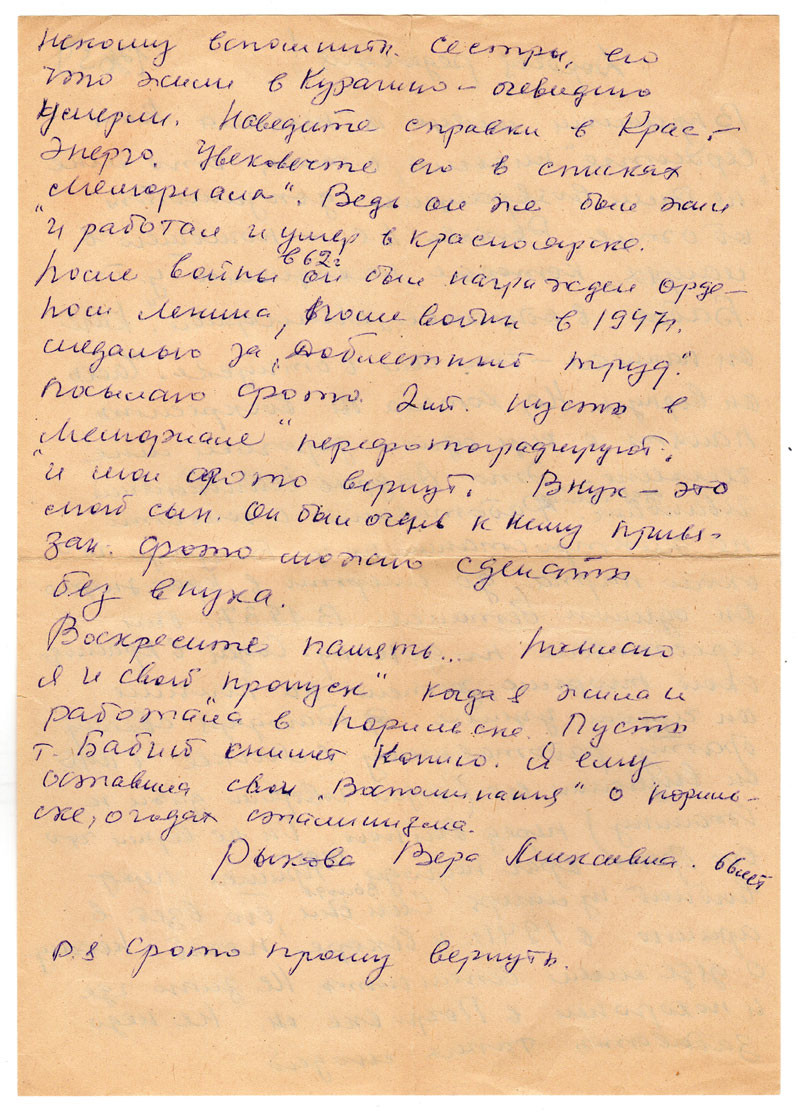 некому вспомнить. Сестры, его
что жили в Курагино – очевидно
умерли. Наведите справки в Крас.–
Энерго. Увековечте его в списках
„Мемориала". Ведь он же был жил
и работал и умер в Красноярске.
После войны в 62г он был награжден орде–
ном Ленина, после войны в 1947г.
медалью за „Доблестный труд".
Посылаю фото. 2шт. пусть в
„Мемориале" перефотографируют,
и мои фото вернут. Внук – это
мой сын. Он был очень к нему привя–
зан. Фото можно сделать
без внука.
Воскресите память... Посылаю
я и свой „пропуск" когда я жила и
работала в Норильске. Пусть
т. Бабий снимет копию. Я ему
оставила свои „Воспоминания" о Нориль–
ске, о годах сталинизма.
Рыкова Вера Алексеевна. 66лет
P.S Фото прошу вернуть.